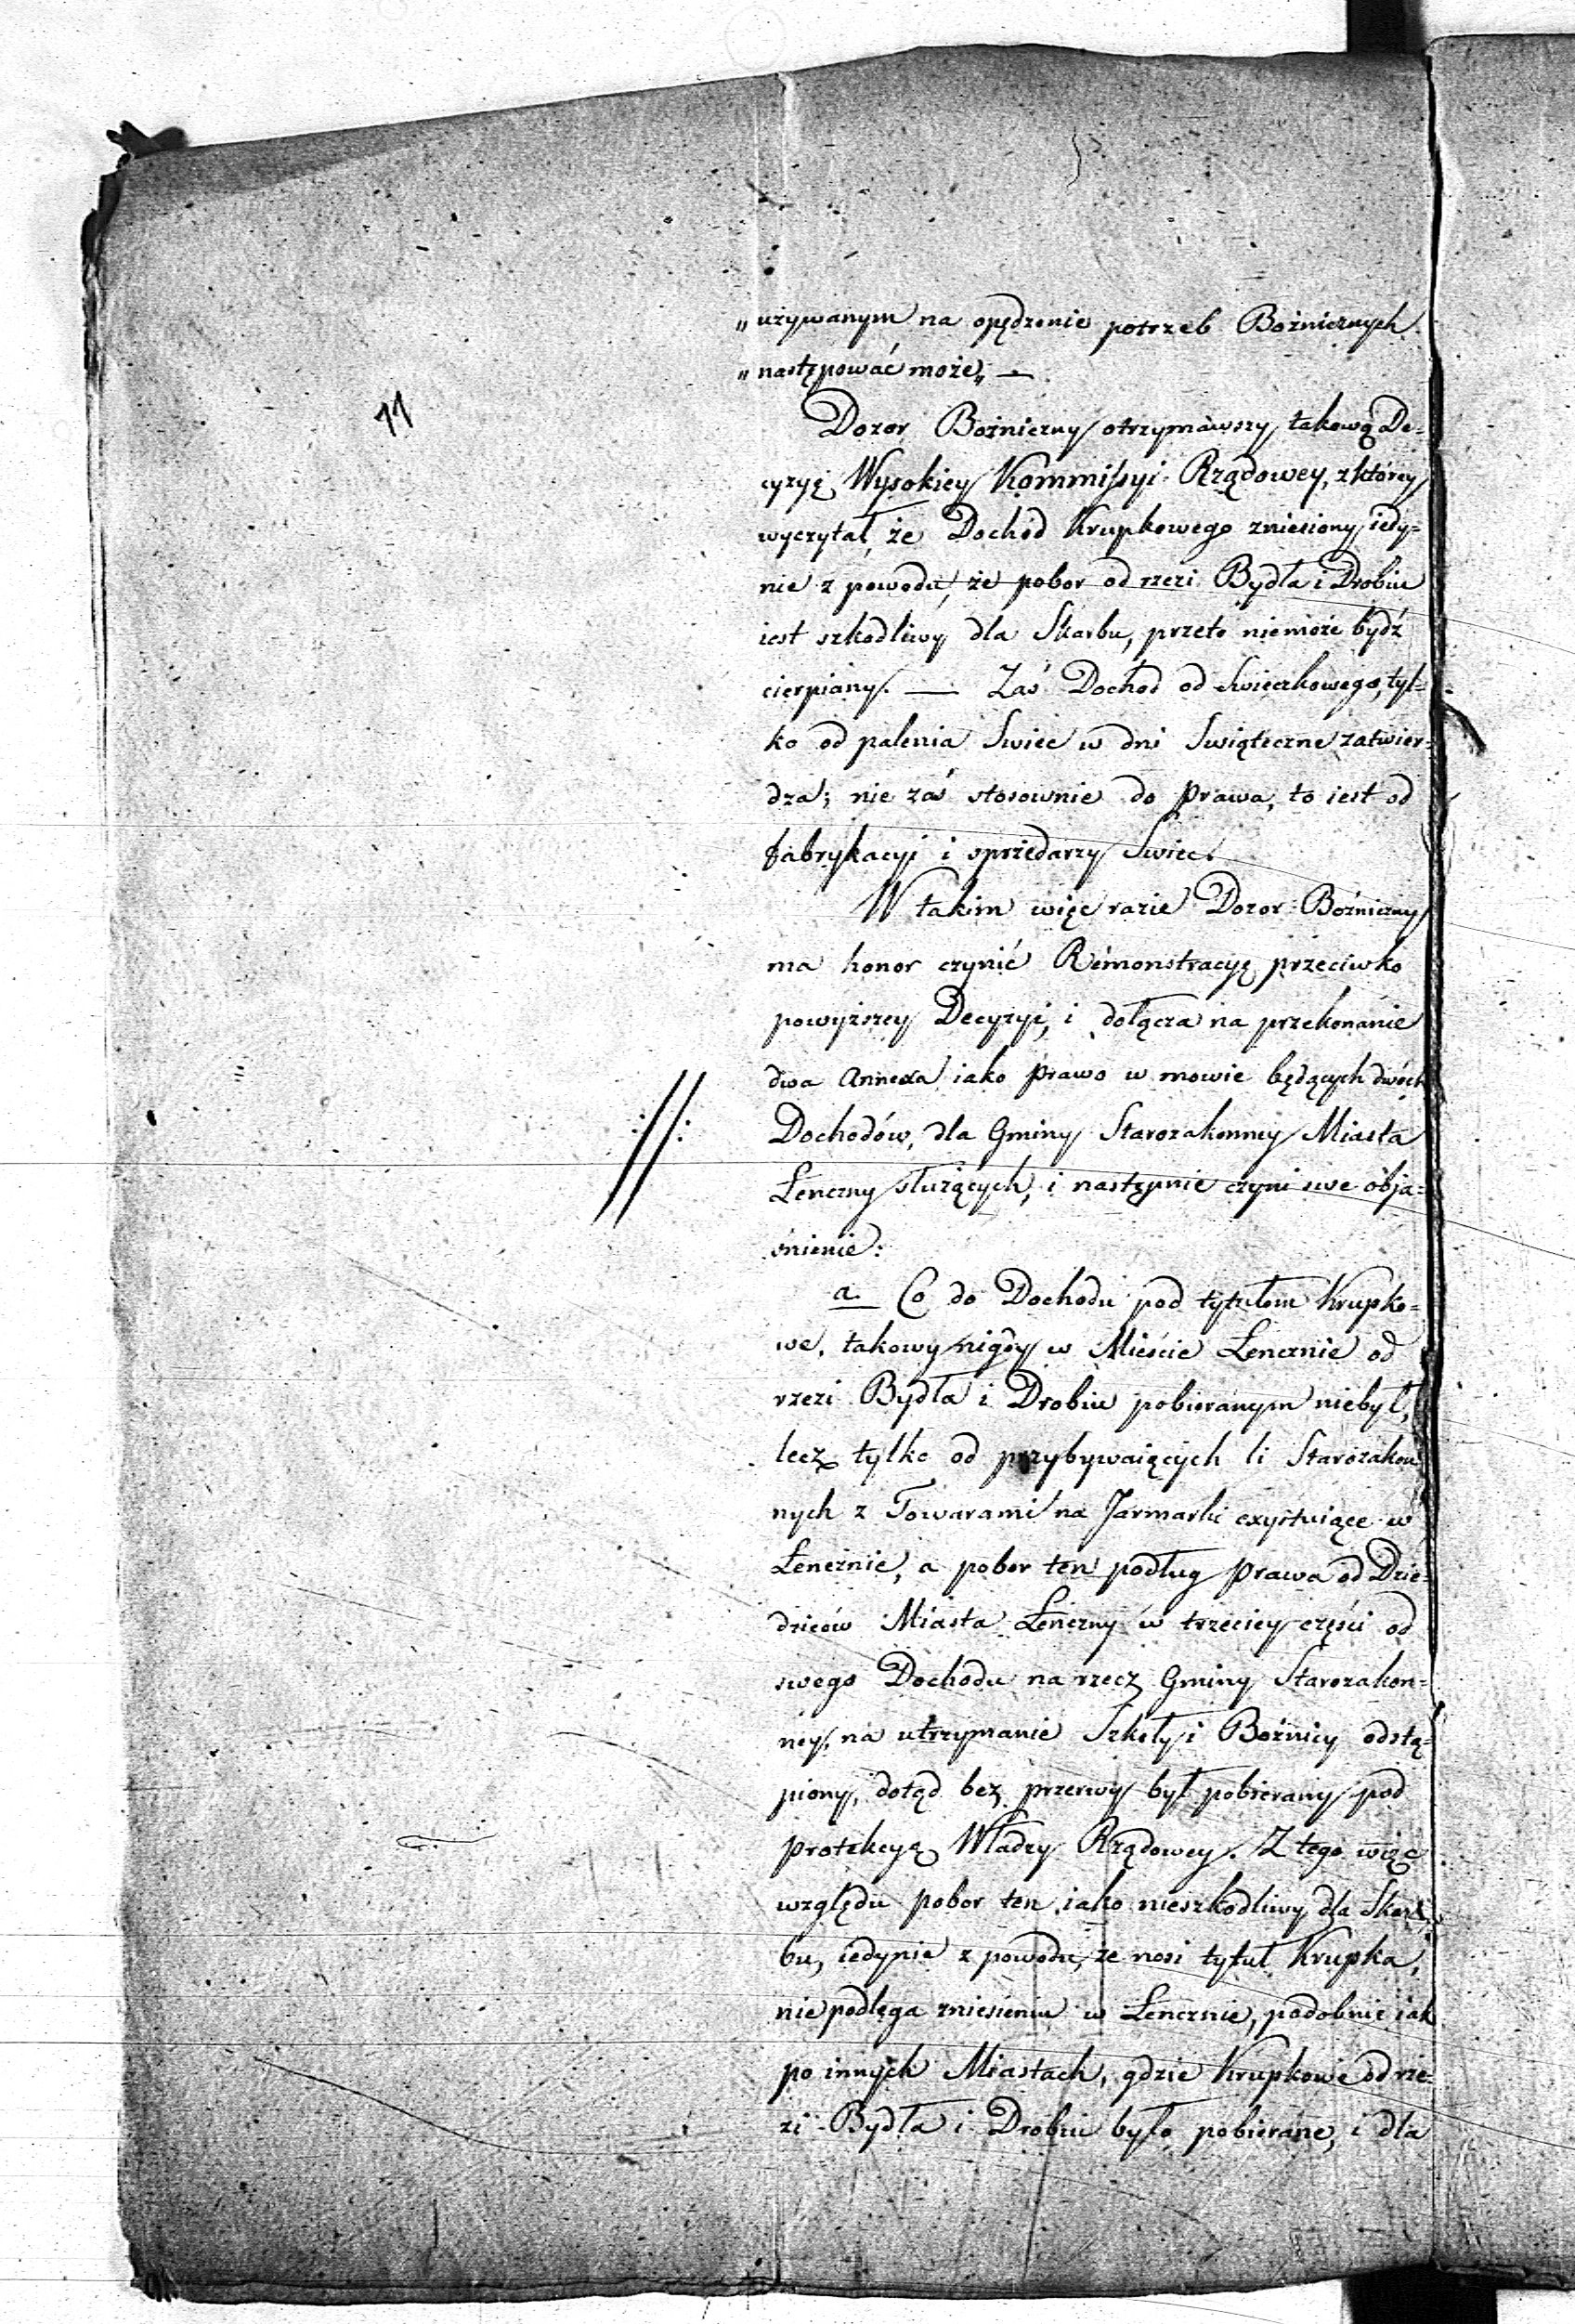 „używanym na opędzenie potrzeb Bożnicznych
„następować może„ —
11
Dozor Bożniczny otrzymawszy takową De-
cyzyę Wysokiey Kommissyi Rządowey, z którey
wyczytał, że Dochód Krupkowego zniesiony iedy-
nie z powodu, że pobor od rzezi Bydła i Drobiu
iest szkodliwy dla Skarbu, przeto niemoże bydź
cierpiany. — Zaś Dochod od Swieczkowego, tyl-
ko od palenia Swiec w dni Swiąteczne zatwier-
dza; nie zaś stosownie do Prawa, to iest od
fabrykacyi i sprzedarzy Swiec.
W takim więc razie Dozor Bożniczny
ma honor czynić Remonstracyę przeciwko
powyższey Decyzyi, i dołącza na przekonanie
dwa Annexa iako Prawo w mowie będących dwóch
://: Dochodów, dla Gminy Starozakonney Miasta
Łenczny służących, i następnie czyni swe obja-
śnienie:
a. Co do Dochodu pod tytułem Krupko-
we, takowy nigdy w Mieście Łencznie od
rzezi Bydła i Drobiu pobieranym niebył,
lecz tylko od przybywaiących li Starozakon
nych z Towarami na Jarmarki exystuiące w
Łencznie, a pobor ten podług Prawa od Dzie-
dziców Miasta Łenczny w trzeciey części od
swego Dochodu na rzecz Gminy Starozakon-
ney, na utrzymanie Szkoły i Bożnicy odstą-
piony, dotąd bez przerwy był pobierany pod
protekcyą Władzy Rządowey. Z tego więc
względu pobor ten iako nieszkodliwy dla Skar-
bu, iedynie z powodu, że nosi tytuł Krupka,
nie podlega zniesieniu w Łencznie, podobnie iak
po innych Miastach, gdzie Krupkowe od rze-
zi Bydła i Drobiu było pobierane, i dla